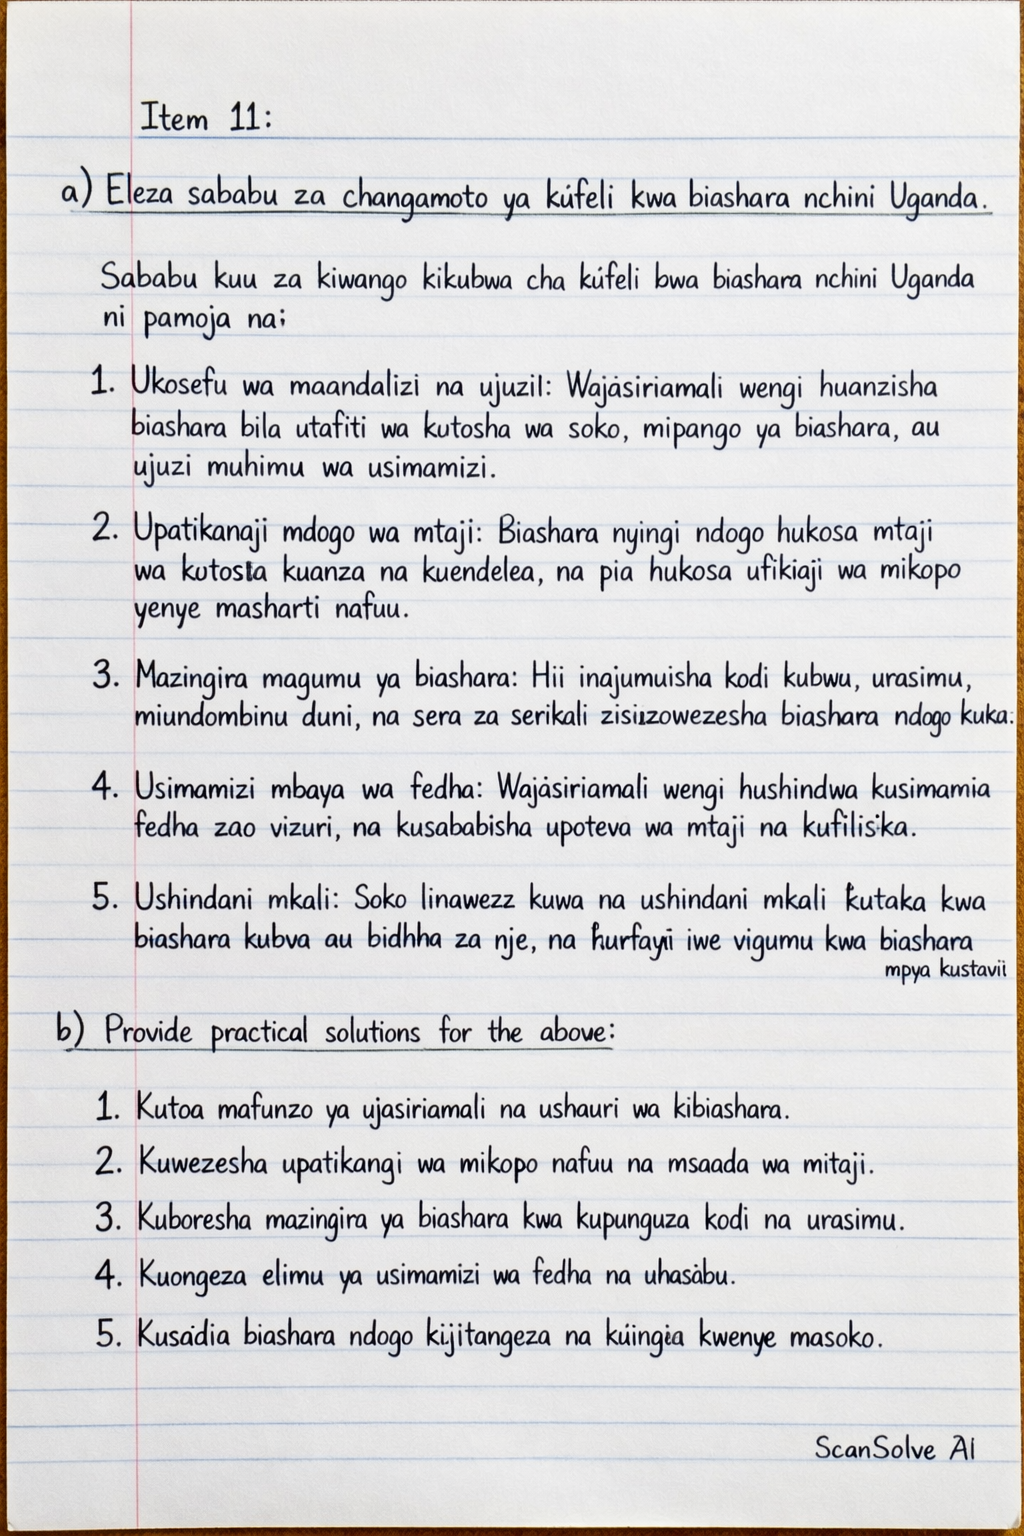 Item 11:
a) Eleza sababu za changamoto ya kúfeli kwa biashara nchini Uganda.
Sababu kuu za kiwango kikubwa cha kúfeli bwa biashara nchini Uganda
ni pamoja na;
1. Ukosefu wa maandalizi na ujuzil: Wajásiriamali wengi huanzisha
biashara bila utafiti wa kutosha wa soko, mipango ya biashara, au
ujuzi muhimu wa usimamizi.
2. Upatikanaji mdogo wa mtaji: Biashara nyingi ndogo hukosa mtaji
wa kutosta kuanza na kuendelea, na pia hukosa ufikiaji wa mikopo
yenye masharti nafuu.
3. Mazingira magumu ya biashara: Hii inajumuisha kodi kubwu, urasimu,
miundombinu duni, na sera za serikali biashara ndogo kuka.
4. Usimamizi mbaya wa fedha: Wajásiriamali wengi hushindwa kusimamia
fedha zao vizuri, na kusababisha upoteva wa mtaji na kufilisika.
5. Ushindani mkali: Soko linawezz kuwa na ushindani mkali kutaka kwa
biashara kubva au bidhha za nje, na iwe vigumu kwa biashara
mpya kustavii
b) Provide practical solutions for the above:
1. Kutoa mafunzo ya ujasiriamali na ushauri wa kibiashara.
2. Kuwezesha upatikangi wa mikopo nafuu na msaada wa mitaji.
3. Kuboresha mazingira ya biashara kwa kupunguza kodi na urasimu.
4. Kuongeza elimu ya usimamizi wa fedha na uhasàbu.
5. Kusaidia biashara ndogo kijitangeza na kúingia kwenye masoko.
ScanSolve AI